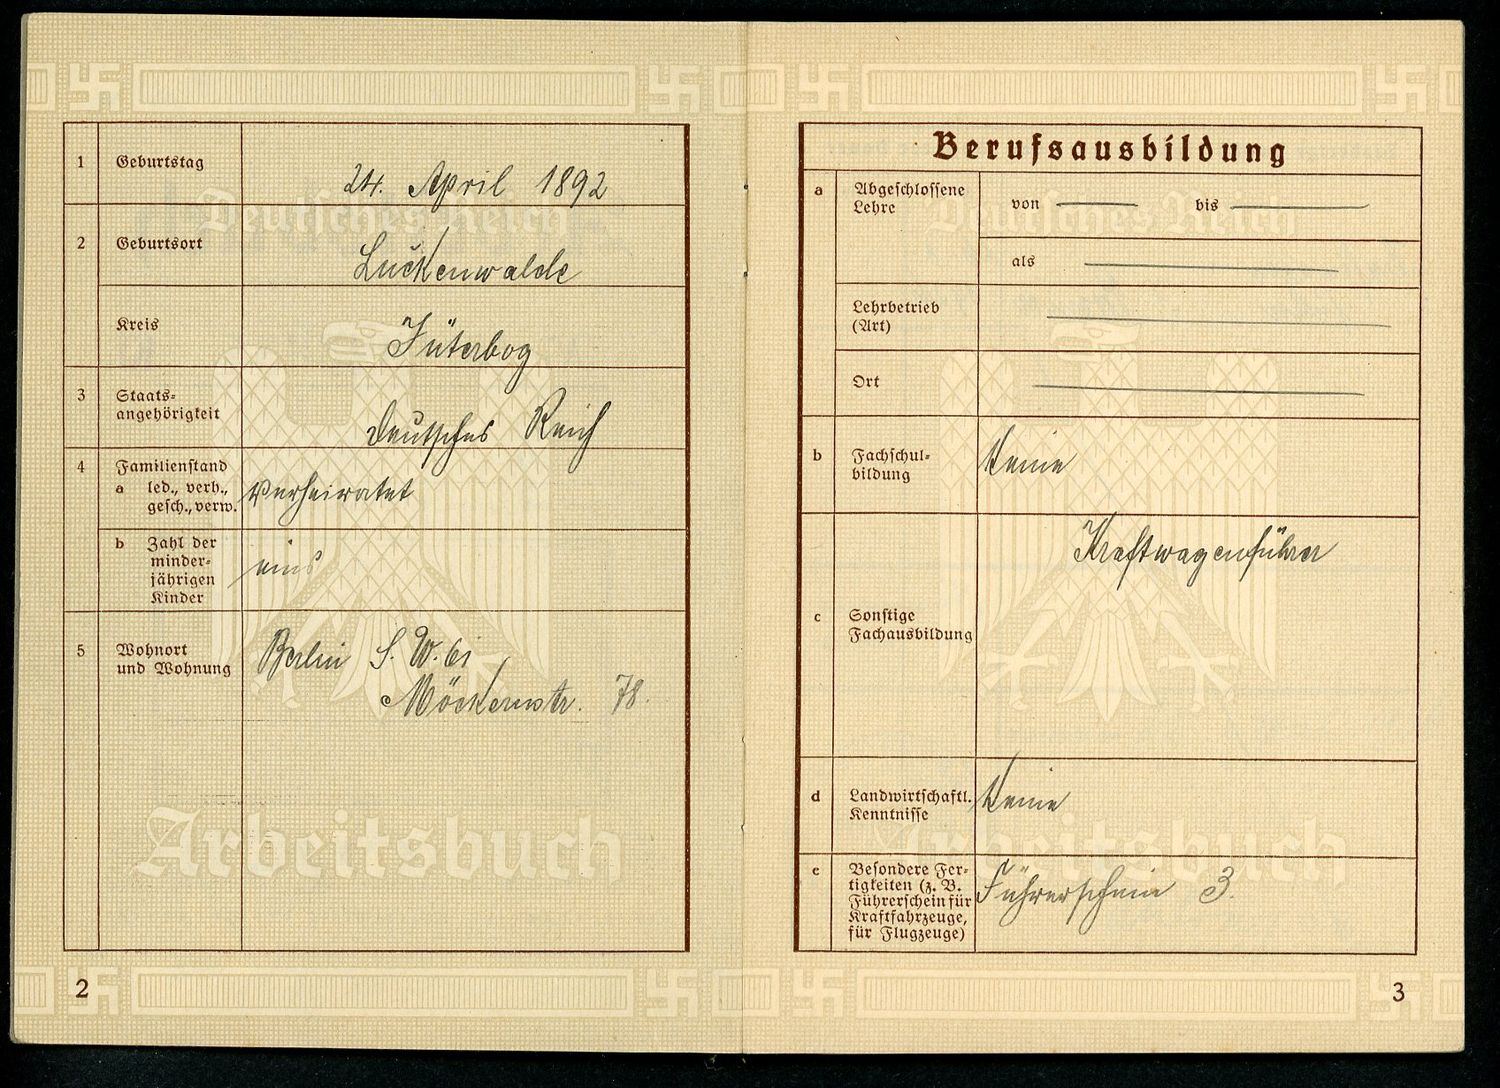 1 Geburtstag 24. April 1892
2 Geburtsort Luckenwalde
Kreis Jüterbog
3 Staats-
angehörigkeit Deutsches Reich
4 Familienstand
a led., verh.,
gesch., verw. verheiratet
b Zahl der
minder-
jährigen
Kinder eins
5 Wohnort
und Wohnung Berlin S.W. 61
Möckernstr. 78.
Deutsches Reich
Arbeitsbuch
2
Berufsausbildung
a Abgeschlossene
Lehre von bis
als
Lehrbetrieb
(Art)
Ort
b Fachschul-
bildung Keine
c Sonstige
Fachausbildung
Kraftwagenführer
d Landwirtschaftl.
Kenntnisse Keine
e Besondere Fer-
tigkeiten (z. B.
Führerschein für
Kraftfahrzeuge,
für Flugzeuge) Führerschein 3.
Deutsches Reich
Arbeitsbuch
3